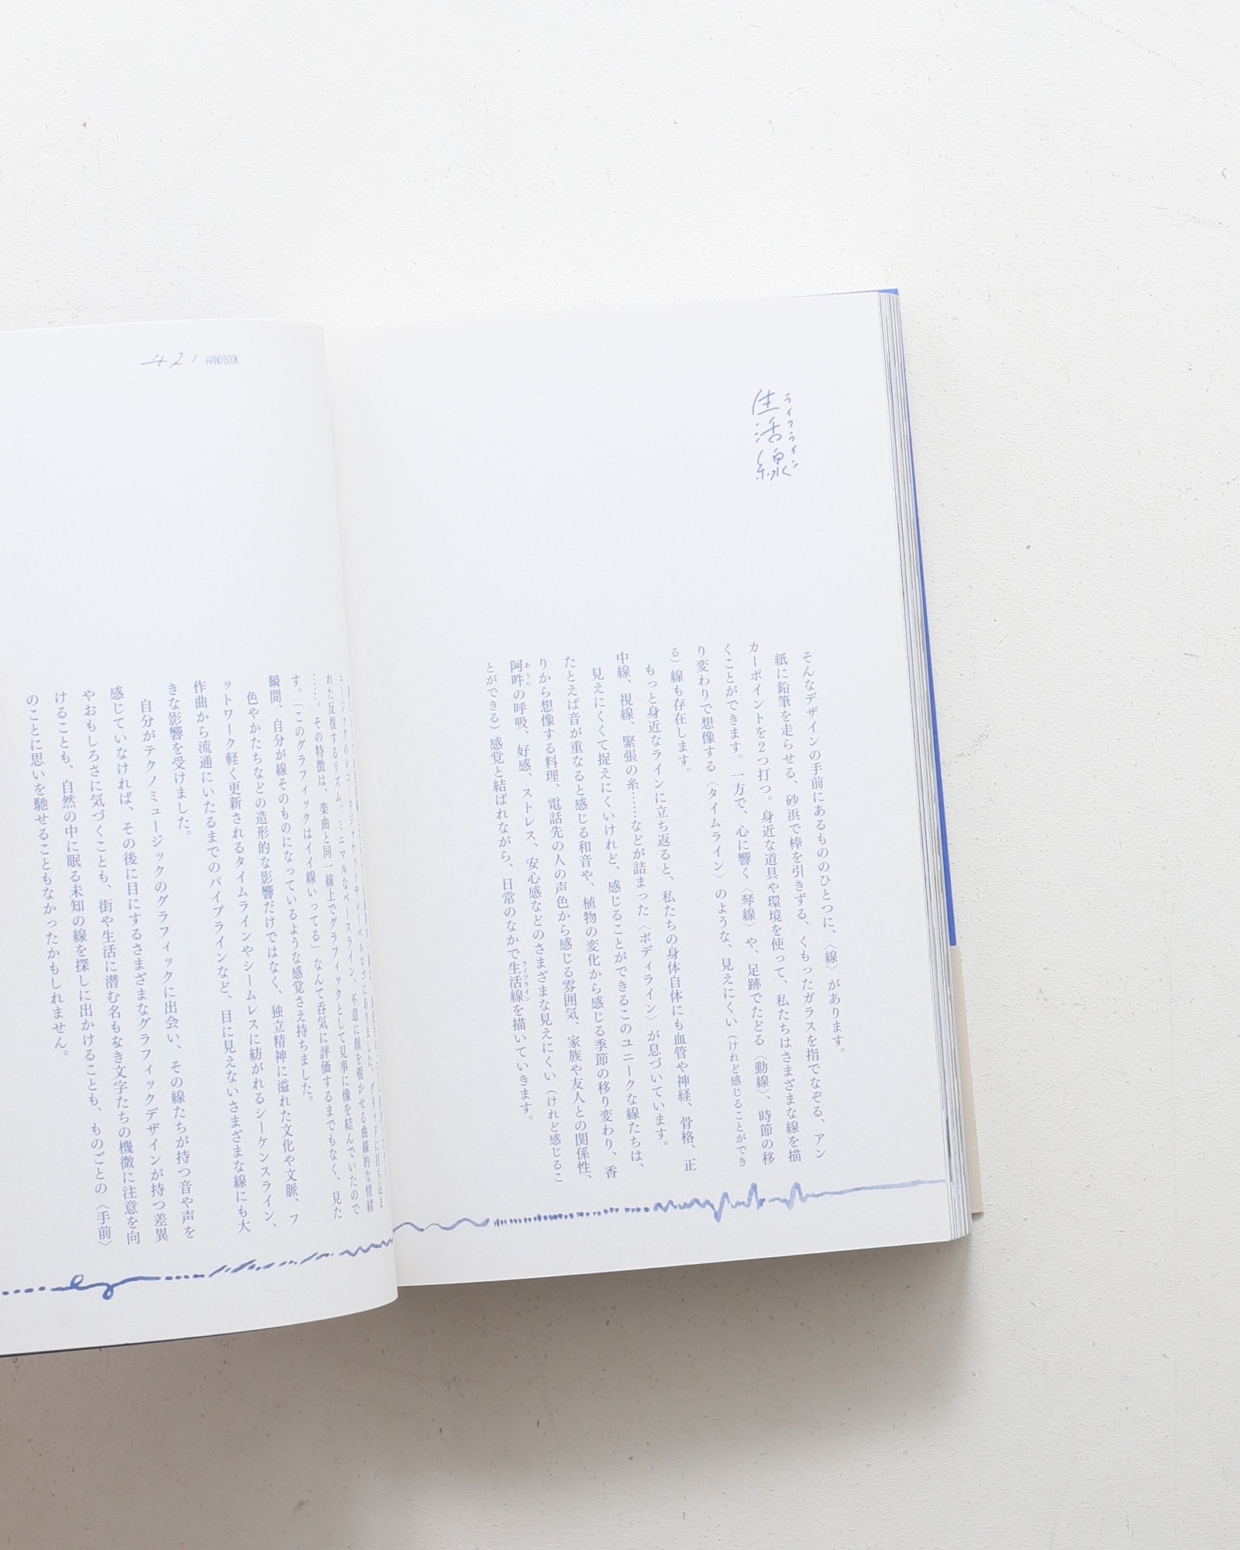 生活線
ライフライン
そんなデザインの手前にあるもののひとつに、〈線〉があります。
紙に鉛筆を走らせる、砂浜で棒を引きずる、くもったガラスを指でなぞる、アン
カーポイントを2つ打つ。身近な道具や環境を使って、私たちはさまざまな線を描
くことができます。一方で、心に響く〈琴線〉や、足跡でたどる〈動線〉、時節の移
り変わりで想像する〈タイムライン〉のような、見えにくい（けれど感じることができ
る）線も存在します。
もっと身近なラインに立ち返ると、私たちの身体自体にも血管や神経、骨格、正
中線、視線、緊張の糸……などが詰まった〈ボディライン〉が息づいています。
見えにくくて捉えにくいけれど、感じることができるこのユニークな線たちは、
たとえば音が重なると感じる和音や、植物の変化から感じる季節の移り変わり、香
りから想像する料理、電話先の人の声色から感じる雰囲気、家族や友人との関係性、
阿吽の呼吸、好感、ストレス、安心感などのさまざまな見えにくい（けれど感じるこ
あうん
とができる）感覚と結ばれながら、日常のなかで生活線を描いていきます。
ライフライン
421 HAND BOOK
れた反復するリズム、ミニマルなベースライン、不意に顔を覗かせる曲線的な情緒
……。その特徴は、楽曲と同一線上でグラフィックとして見事に像を結んでいたので
す。「このグラフィックはイイ線いってる」なんて呑気に評価するまでもなく、見た
瞬間、自分が線そのものになっているような感覚さえ持ちました。
色やかたちなどの造形的な影響だけではなく、独立精神に溢れた文化や文脈、フ
ットワーク軽く更新されるタイムラインやシームレスに紡がれるシーケンスライン、
作曲から流通にいたるまでのパイプラインなど、目に見えないさまざまな線にも大
きな影響を受けました。
自分がテクノミュージックのグラフィックに出会い、その線たちが持つ音や声を
感じていなければ、その後に目にするさまざまなグラフィックデザインが持つ差異
やおもしろさに気づくことも、街や生活に潜む名もなき文字たちの機微に注意を向
けることも、自然の中に眠る未知の線を探しに出かけることも、ものごとの〈手前〉
のことに思いを馳せることもなかったかもしれません。